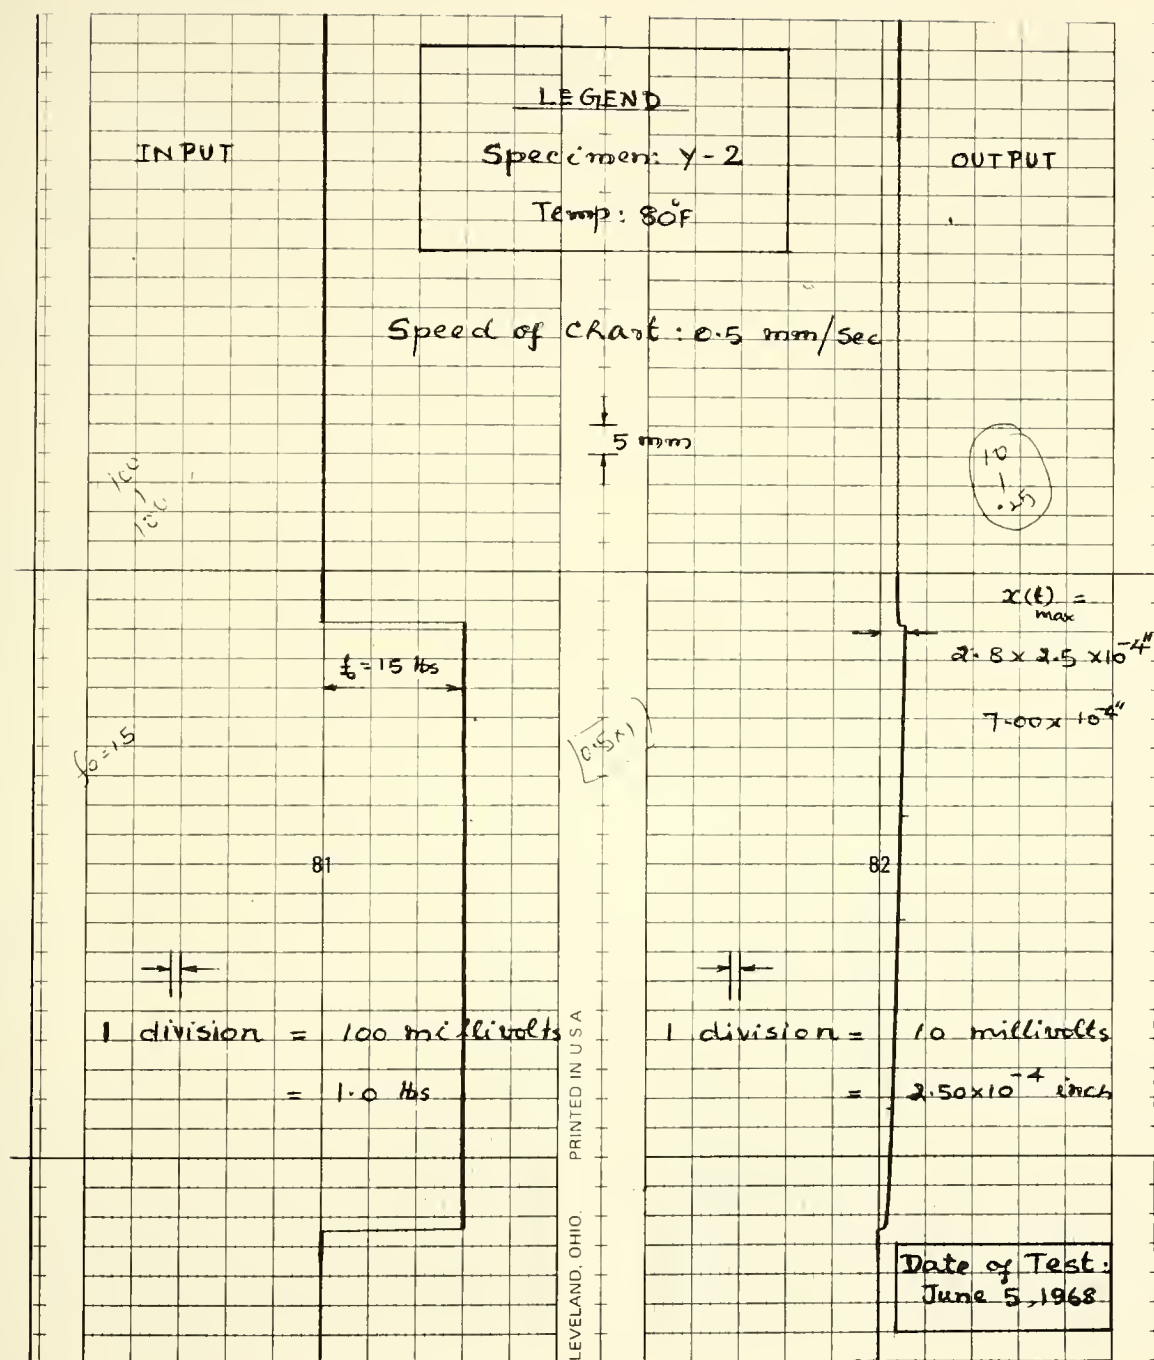 LEGEND
Specimen: Y-2
Temp: 80°F
INPUT
OUTPUT
Speed of Chart: 0.5 mm/Sec
5 mm
100
1
100
10
1
.25
x(t) =
max
2.8 x 2.5 x10⁻⁴"
7.00x 10⁻⁴"
f₀=15 lbs
f₀=15
0.5x1
81
82
1 division = 100 millivolts
= 1.0 lbs
1 division = 10 millivolts
= 2.50x10⁻⁴ inch
PRINTED IN U S A
LEVELAND, OHIO.
Date of Test:
June 5, 1968